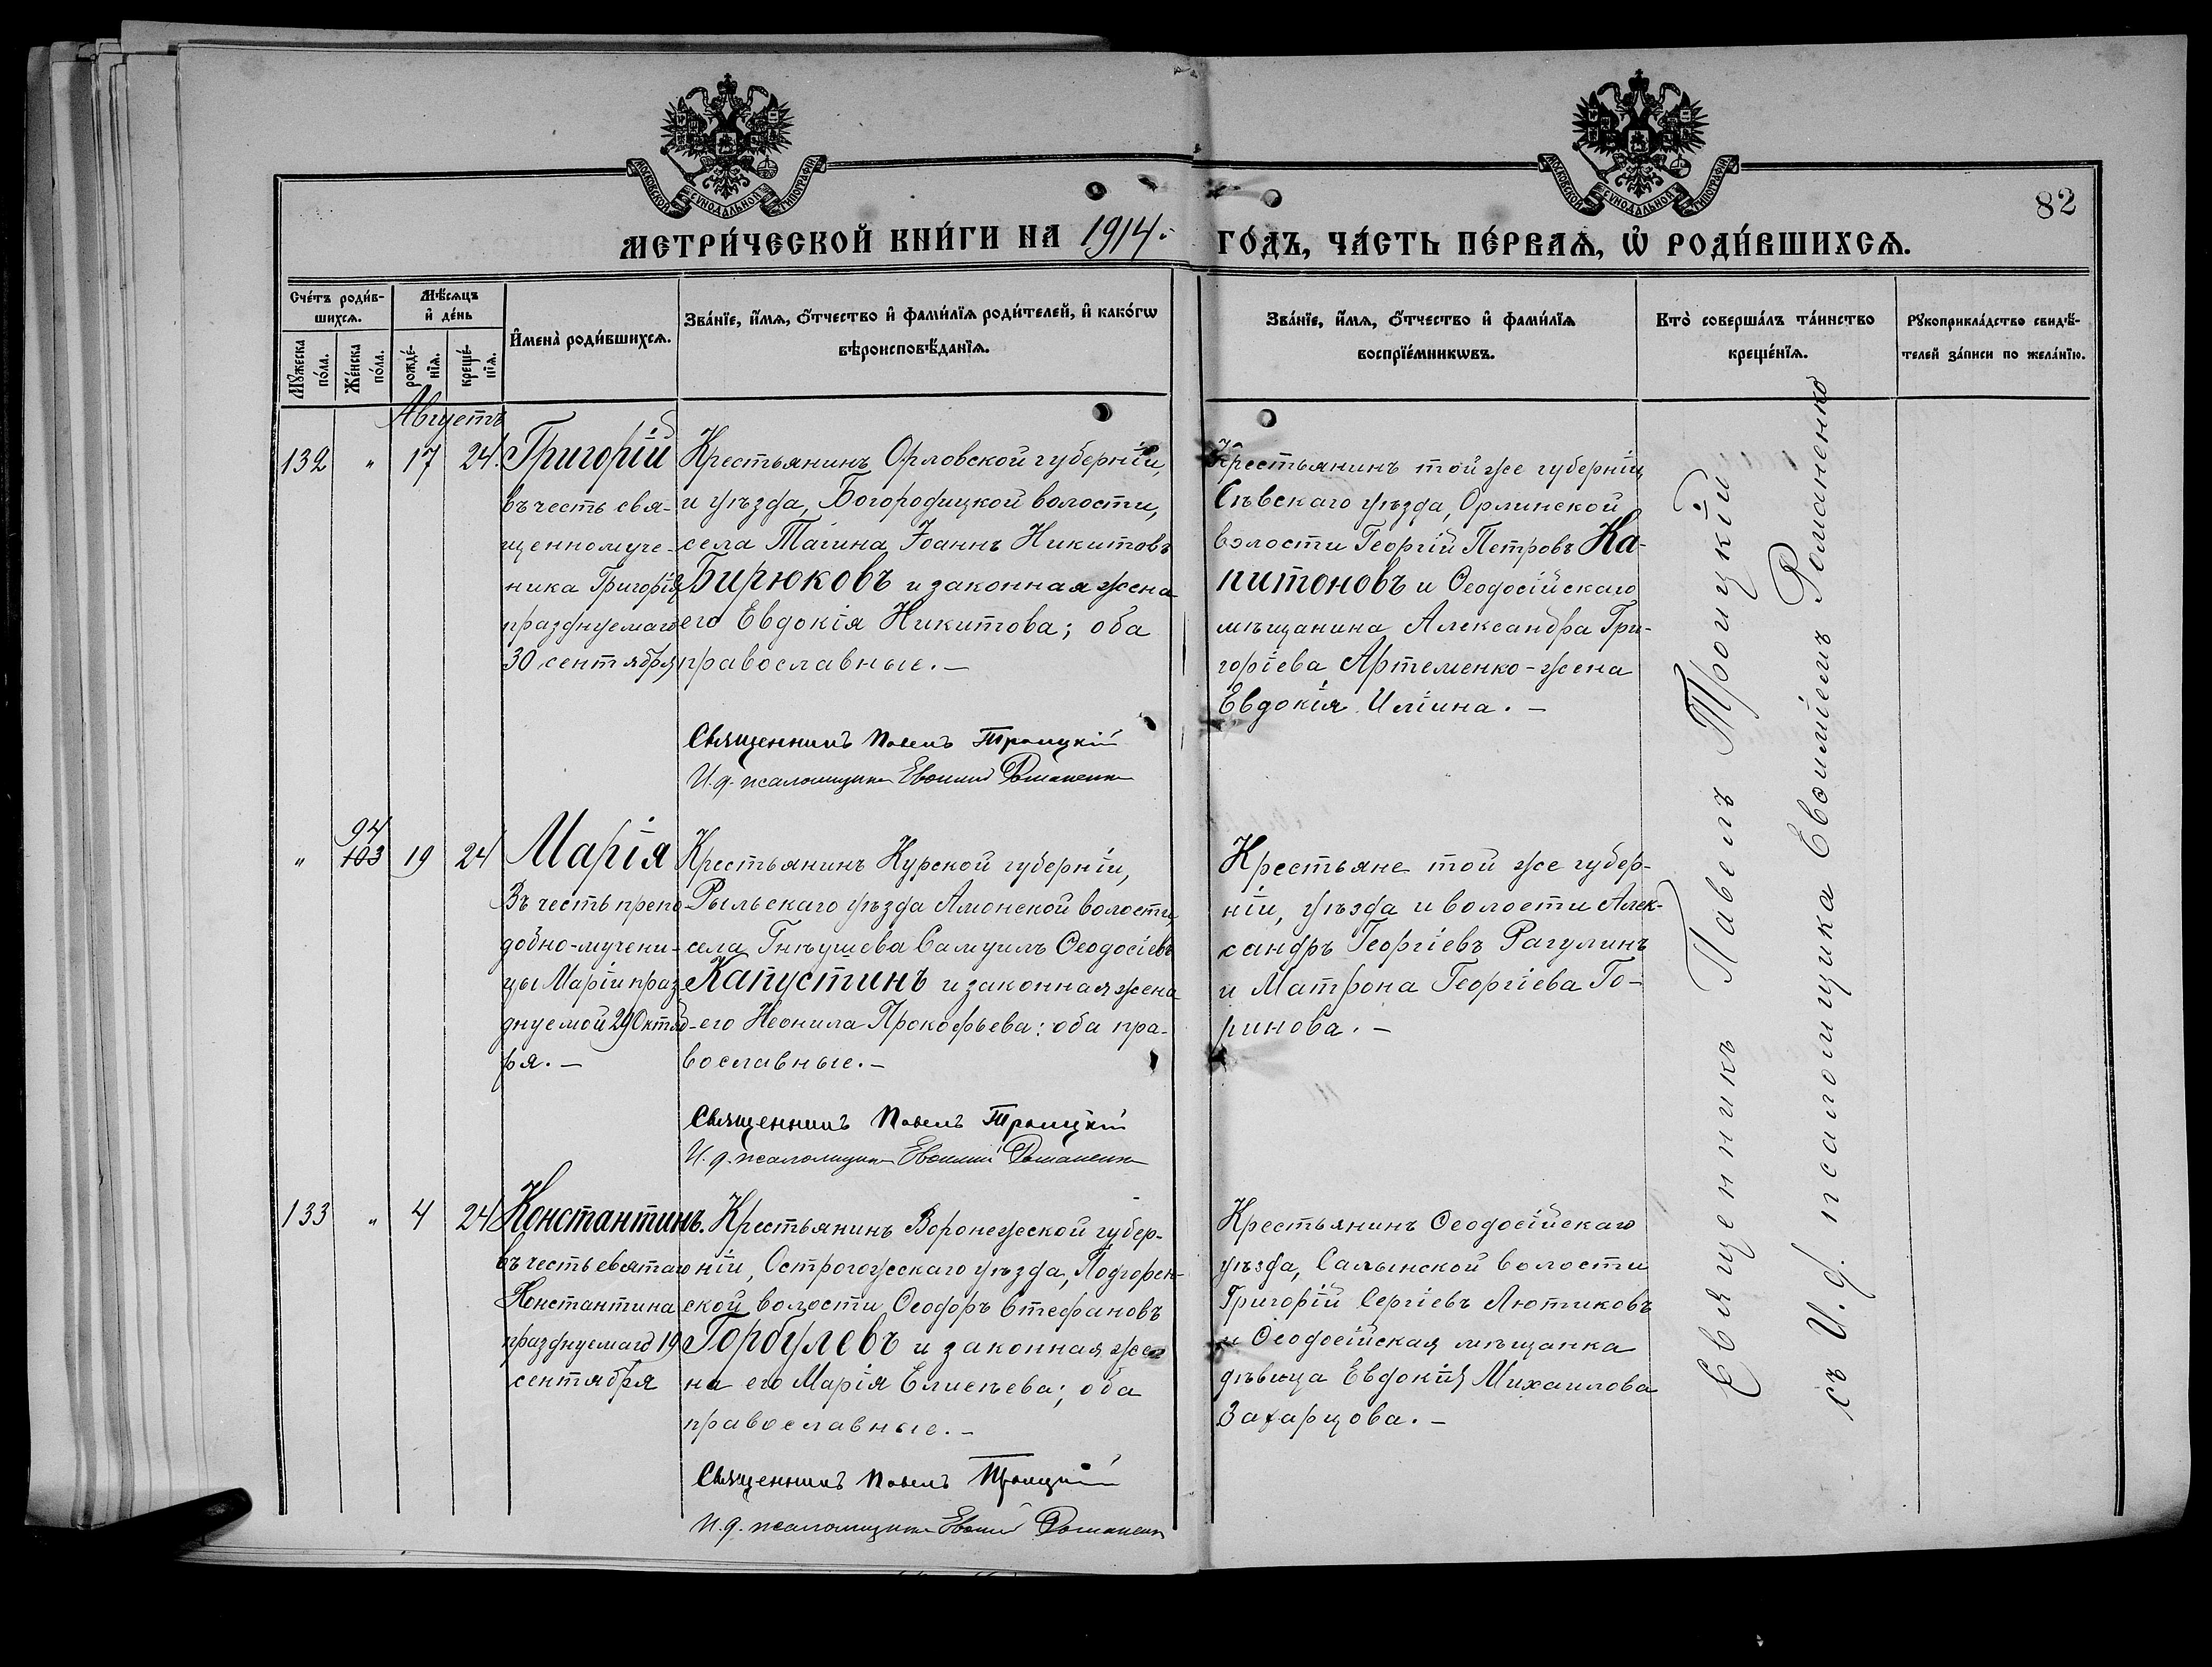 МОСКОВСКОЙ СѴНОДАЛЬНОЙ ТИПОГРАФІИ
МОСКОВСКОЙ СѴНОДАЛЬНОЙ ТИПОГРАФІИ
82
МЕТРИ́ЧЕСКОЙ КНИ́ГИ НА 1914. ГО́ДЪ, ЧА́СТЬ ПЕ́РВАѦ, Ѡ҆ РОДИ́ВШИХСѦ.
Сче́тъ роди́в-
шихсѧ.
Мꙋ́жеска по́ла.
Же́нска по́ла.
Мѣ́сѧцъ
и҆ де́нь
рожде́-
нїѧ.
креще́-
нїѧ.
И҆мена̀ роди́вшихсѧ.
Зва́нїе, и҆́мѧ, ѻ҆́тчество и҆ фами́лїѧ роди́телей, и҆ како́гѡ
вѣроисповѣ́данїѧ.
Зва́нїе, и҆́мѧ, ѻ҆́тчество и҆ фами́лїѧ
воспрїе́мникѡвъ.
Кто̀ соверша́лъ та́инство
креще́нїѧ.
Рꙋкоприкла́дство свидѣ́-
телей за́писи по жела́нїю.
Августъ
132 " 17 24. Григорій
въ честь свя-
щенномуче-
ника Григорія
празднуемаго
30 сентября
Крестьянинъ Орловской губерніи,
и уѣзда, Богородицкой волости,
села Тагина Іоаннъ Никитовъ
Бирюковъ и законная жена
его Евдокія Никитова; оба
православные.—
Священникъ Павелъ Троицкій
И.д. псаломщика Евѳимій Романенко
Крестьянинъ той же губерніи,
Сѣвскаго уѣзда, Орлинской
волости Георгій Петровъ Ка-
питоновъ и Ѳеодосійскаго
мѣщанина Александра Гри-
горіева Артеменко-жена
Евдокія Иліина.—
" 94
103 19 24 Марія
Въ честь препо-
добно-мучени-
цы Маріи праз-
днуемой 29 Октяб-
ря.—
Крестьянинъ Курской губерніи,
Рыльскаго уѣзда Амонской волости,
села Гнѣушева Самуилъ Ѳеодосіевъ
Капустинъ и законная жена
его Неонила Прокофьева: оба пра-
вославные.—
Священникъ Павелъ Троицкій
И.д. псаломщика Евѳимій Романенко
Крестьяне той же губер-
ніи, уѣзда и волости Алек-
сандръ Георгіевъ Рагулинъ
и Матрона Георгіева Го-
ринова.—
133 " 4 24 Константинъ.
въ честь святаго
Константина
празднуемаго 19
сентября
Крестьянинъ Воронежской губер-
ніи, Острогожскаго уѣзда, Подгорен-
ской волости Ѳеодоръ Стефановъ
Горбулевъ и законная же-
на его Марія Елисѣева; оба
православные.—
Священникъ Павелъ Троицкій
И.д. псаломщика Евѳимій Романенко
Крестьянинъ Ѳеодосійскаго
уѣзда, Салынской волости
Григорій Сергіевъ Лютиковъ
и Ѳеодосійская мѣщанка
дѣвица Евдокія Михаилова
Захарцова.—
Священникъ Павелъ Троицкій
съ И.д. псаломщика Евѳиміемъ Романенко